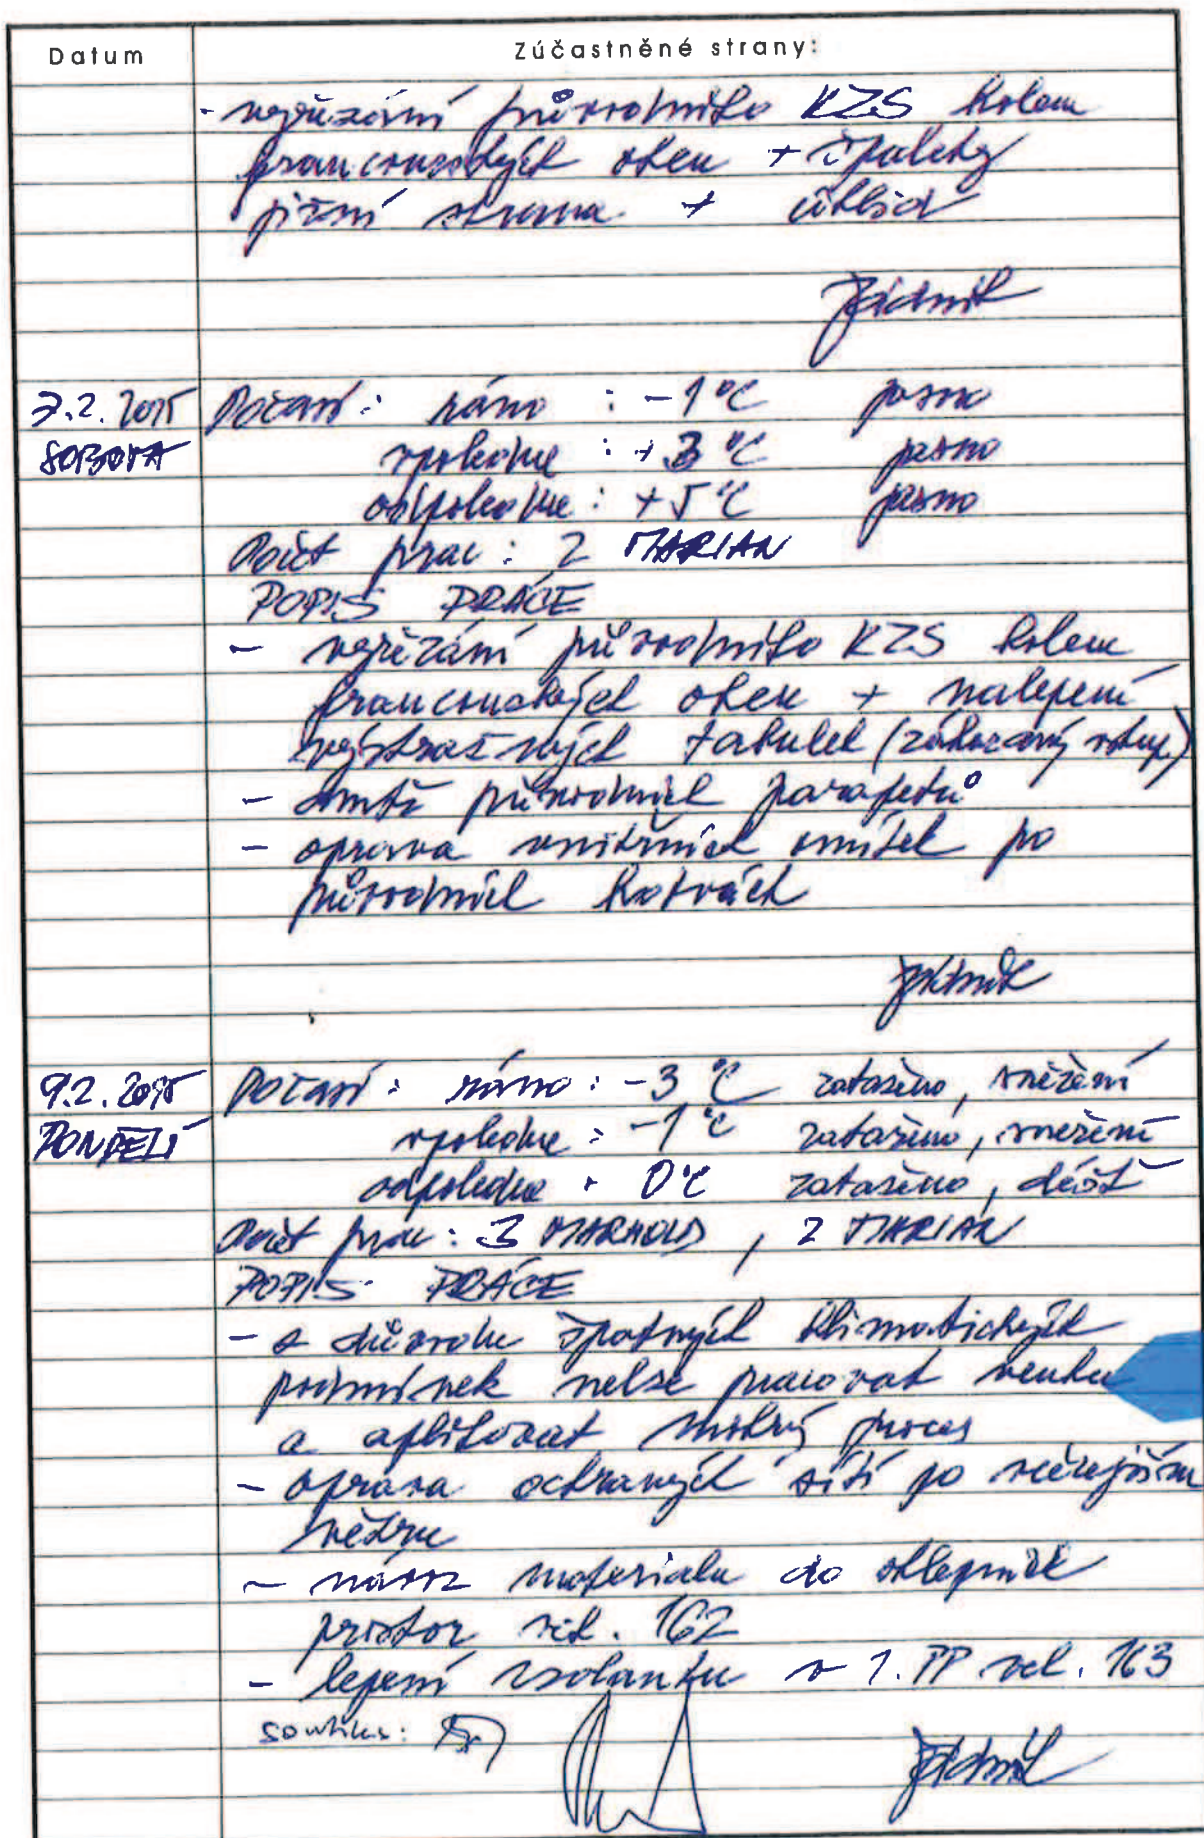 Datum
Zúčastněné strany:
- vyřezání původního KZS kolem
francouzských oken + špalety
jižní strana + úklid
7.2.2015 Počasí: ráno : -1°C jasno
SOBOTA vpoledne : +3°C jasno
odpoledne : +5°C jasno
Počet prac : 2 MARIAN
POPIS PRÁCE
- vyřezání původního KZS kolem
francouzských oken + nalepení
výstražných tabulek (zákazaný vstup)
- demtž původních parapetů
- oprava vnitřních omítek po
původních kotvách
9.2.2015 Počasí : ráno : -3°C zataženo, sněžení
PONDĚLÍ vpoledne : -1°C zataženo, sněžení
odpoledne : 0°C zataženo, déšť
Počet prac : 3 MARHOLD, 2 MARIÁN
POPIS PRÁCE
- z důvodu špatných klimatických
podmínek nelze pracovat venku
a aplikovat mokrý proces
- oprava ochraných sítí po včerejším
větru
- návoz materialu do sklepních
prostor vch. 162
- lepení izolantu v 1. PP vch. 163
souhlas: